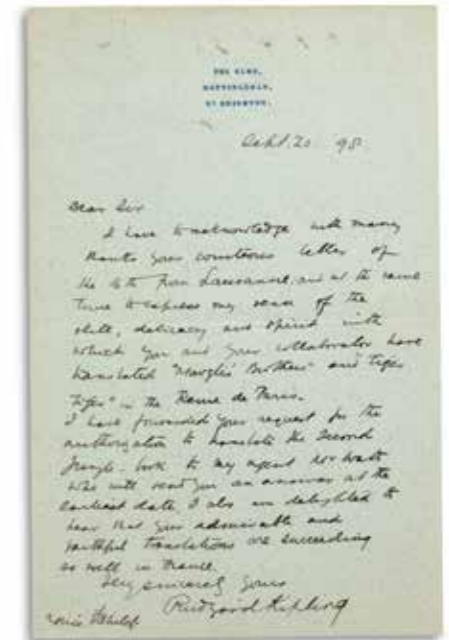 THE ELMS,
ROTTINGDEAN,
Nr BRIGHTON.
Sept. 20. 98.
Dear Sir
I have to acknowledge with many
thanks your courteous letter of
the from Lausanne, and at the same
time to express my sense of the
skill, delicacy and spirit with
which you and your collaborator have
translated "Mowgli's Brothers" and "Tiger
Tiger" in the Revue de Paris.
I have forwarded your request for the
authorization to translate the Second
Jungle-book to my agent Mr Watt
who will send you an answer at the
earliest date. I also am delighted to
hear that your admirable and
faithful translations are succeeding
so well in France.
Very sincerely yours
Rudyard Kipling
Louis